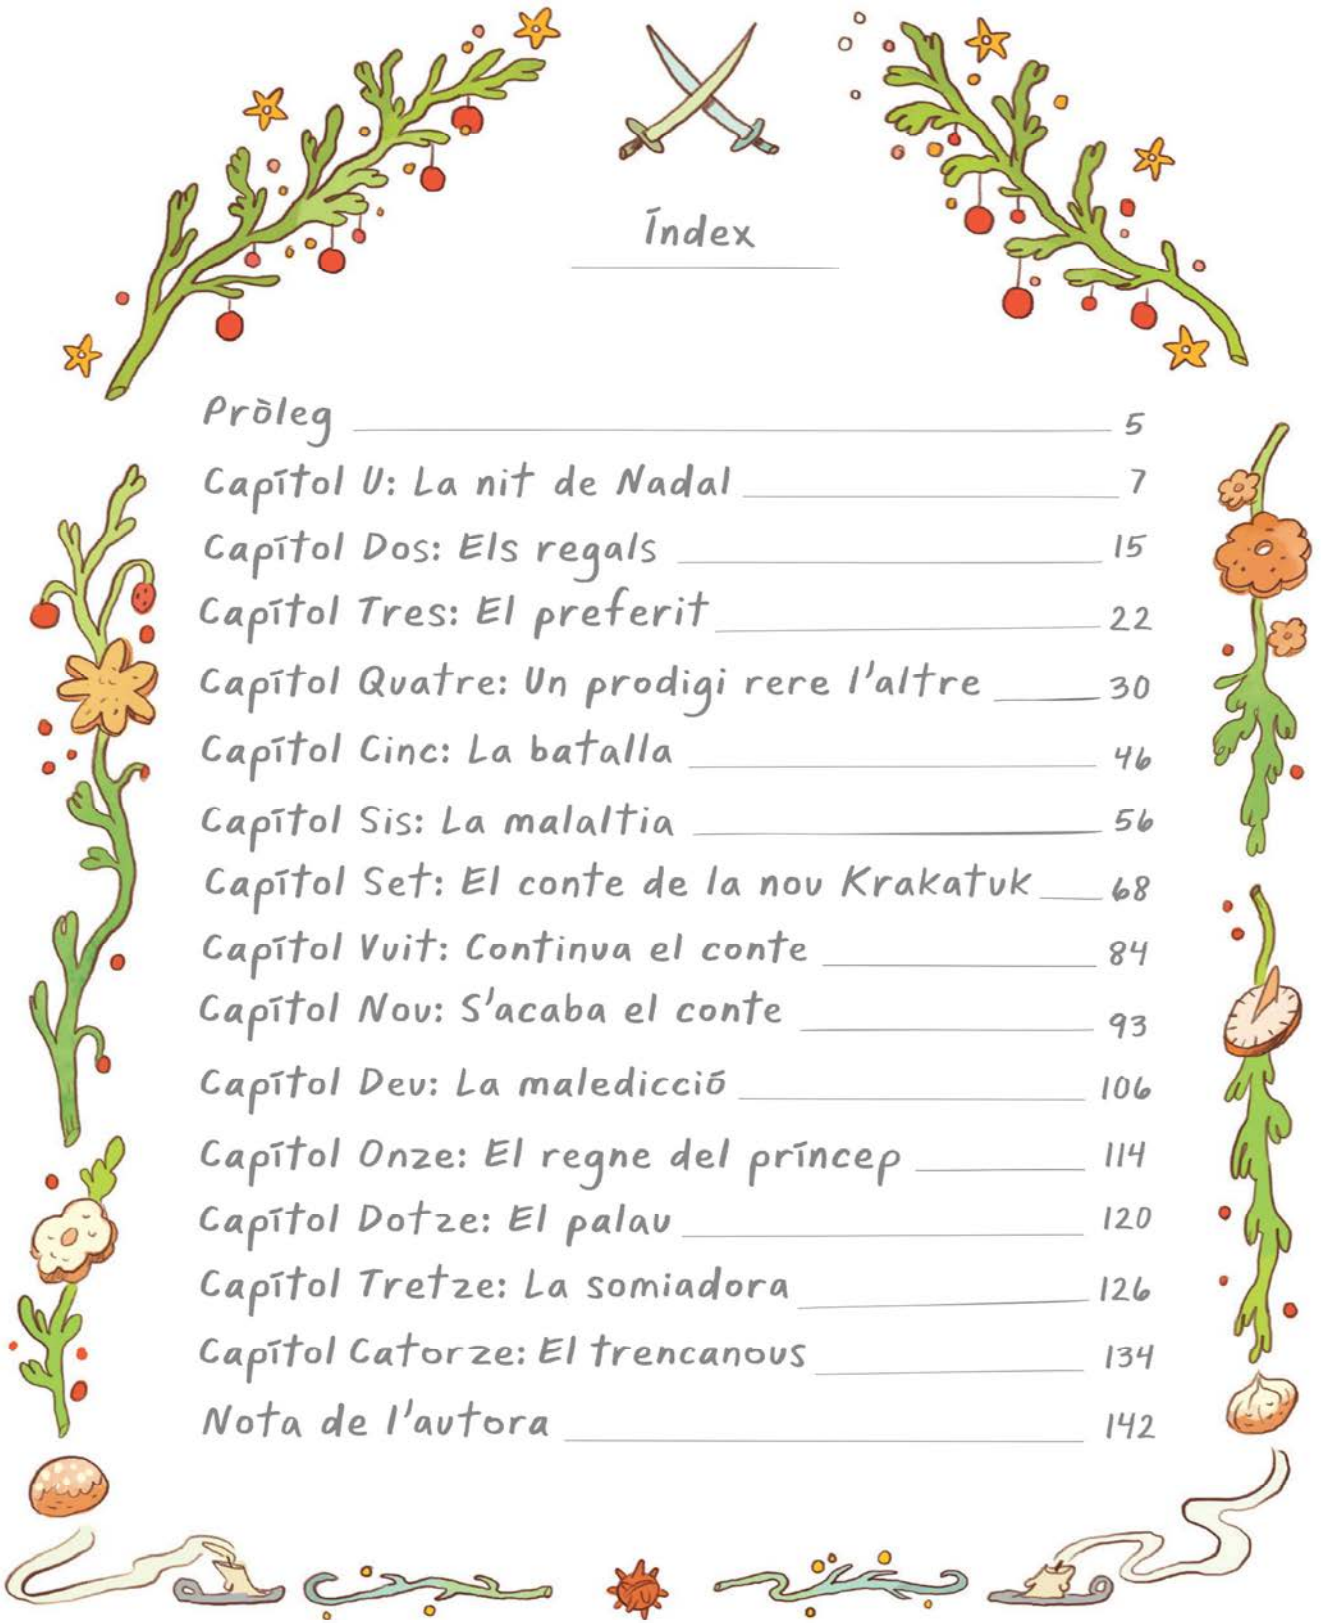 Índex
Pròleg 5
Capítol U: La nit de Nadal 7
Capítol Dos: Els regals 15
Capítol Tres: El preferit 22
Capítol Quatre: Un prodigi rere l'altre 30
Capítol Cinc: La batalla 46
Capítol Sis: La malaltia 56
Capítol Set: El conte de la nou Krakatuk 68
Capítol Vuit: Continua el conte 84
Capítol Nou: S'acaba el conte 93
Capítol Deu: La maledicció 106
Capítol Onze: El regne del príncep 114
Capítol Dotze: El palau 120
Capítol Tretze: La somiadora 126
Capítol Catorze: El trencanous 134
Nota de l'autora 142